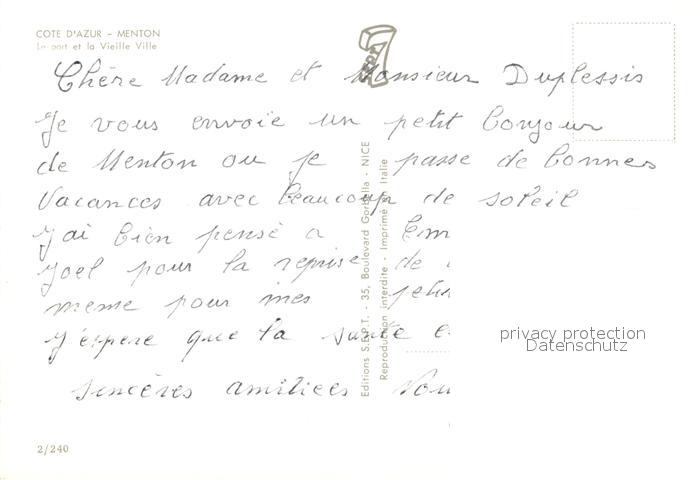 COTE D'AZUR – MENTON
Le port et la Vieille Ville
Chère Madame et Monsieur Duplessis
Je vous envoie un petit bonjour
de Menton ou je passe de bonnes
vacances avec beaucoup de soleil
J'ai bien pensé a Em
Joel pour la reprise de
meme pour mes
J'espere que la santé e
Sincères amitiées
Editions S.E.P.T. - 35, Boulevard Gorbella - NICE
Reproduction interdite - Imprimé en Italie
privacy protection
Datenschutz
2/240